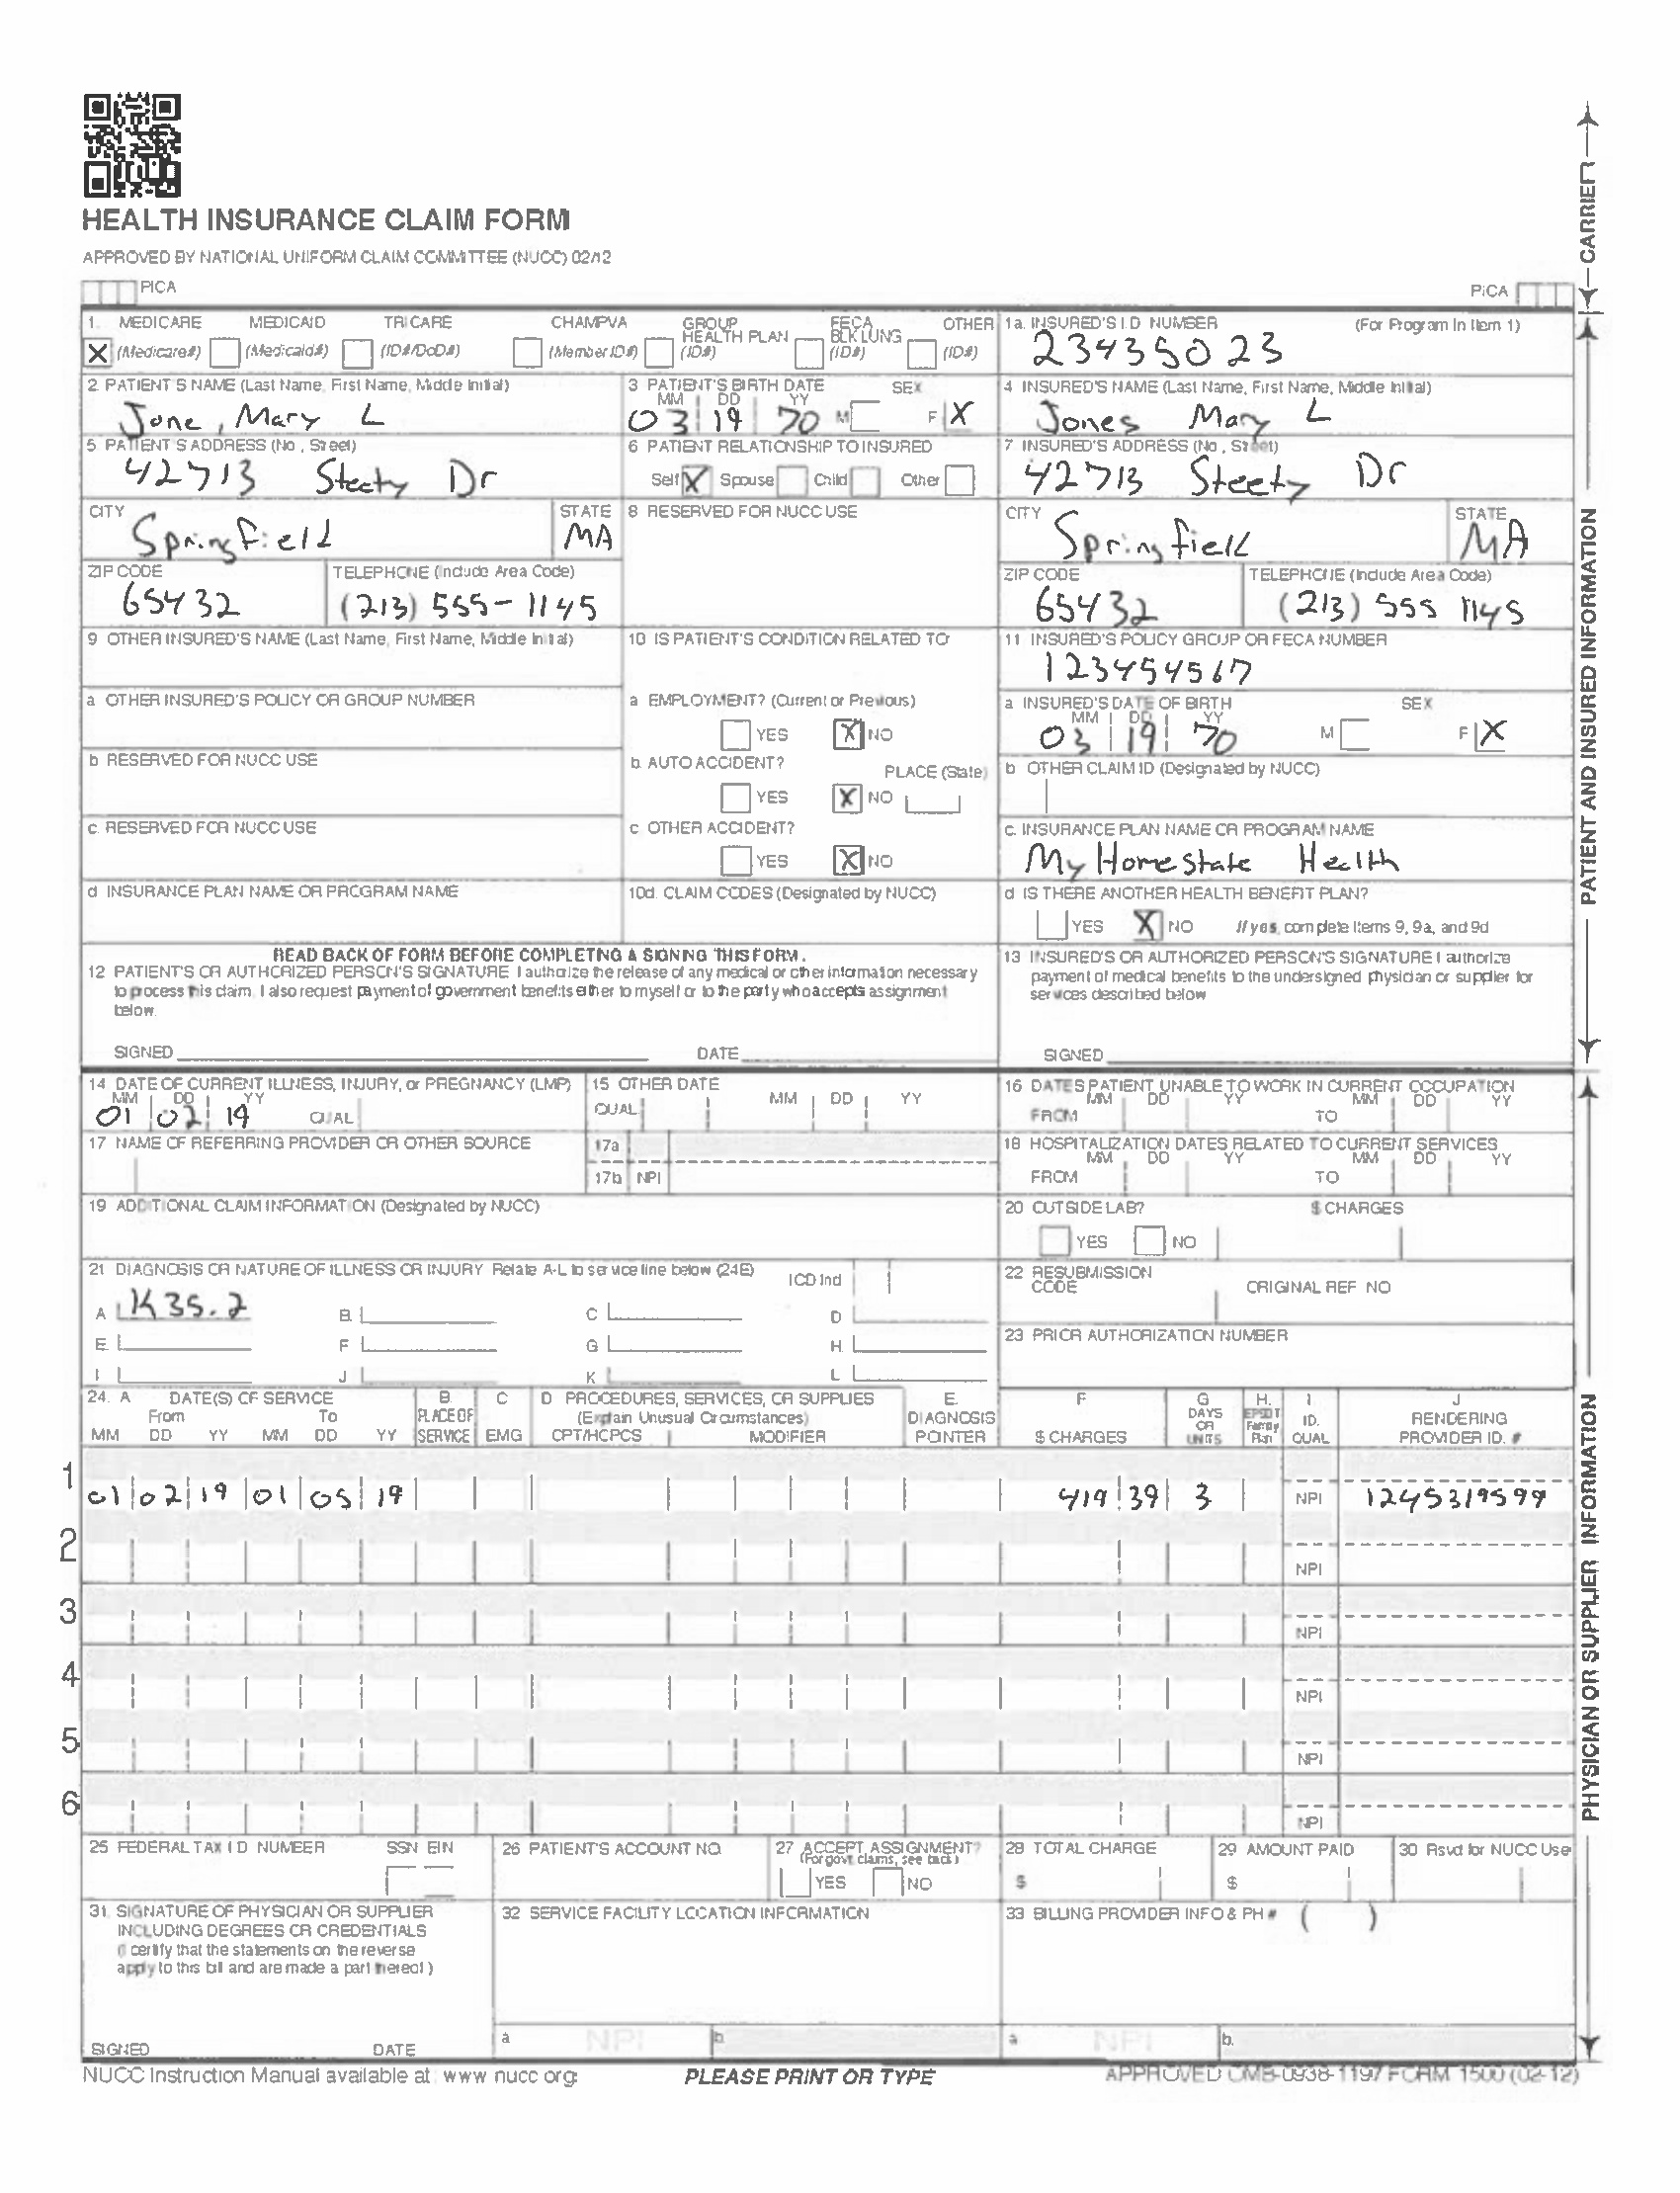 HEALTH INSURANCE CLAIM FORM
APPROVED BY NATIONAL UNIFORM CLAIM COMMITTEE (NUCC) 02/12
PICA PICA
CARRIER
1. MEDICARE MEDICAID TRICARE CHAMPVA GROUP HEALTH PLAN FECA BLK LUNG OTHER
X (Medicare#) (Medicaid#) (ID#/DoD#) (Member ID#) (ID#) (ID#) (ID#)
1a. INSURED'S I.D NUMBER (For Program In Item 1)
23435023
2 PATIENT'S NAME (Last Name, First Name, Middle Initial)
Jone, Mary L
3 PATIENT'S BIRTH DATE SEX
MM DD YY
03 19 70 M F X
4 INSURED'S NAME (Last Name, First Name, Middle Initial)
Jones Mary L
5 PATIENT'S ADDRESS (No, Street)
42713 Steety Dr
6 PATIENT RELATIONSHIP TO INSURED
Self X Spouse Child Other
7 INSURED'S ADDRESS (No, Street)
42713 Steety Dr
CITY STATE
Springfield MA
8 RESERVED FOR NUCC USE
CITY STATE
Springfield MA
ZIP CODE TELEPHONE (Include Area Code)
65432 (213) 555-1145
ZIP CODE TELEPHONE (Include Area Code)
65432 (213) 555 1145
9 OTHER INSURED'S NAME (Last Name, First Name, Middle Initial)
10 IS PATIENT'S CONDITION RELATED TO
11 INSURED'S POLICY GROUP OR FECA NUMBER
123454567
a OTHER INSURED'S POLICY OR GROUP NUMBER
a EMPLOYMENT? (Current or Previous)
YES X NO
a INSURED'S DATE OF BIRTH SEX
MM DD YY
03 19 70 M F X
b RESERVED FOR NUCC USE
b. AUTO ACCIDENT? PLACE (State)
YES X NO
b OTHER CLAIM ID (Designated by NUCC)
c. RESERVED FOR NUCC USE
c OTHER ACCIDENT?
YES X NO
c. INSURANCE PLAN NAME OR PROGRAM NAME
My Home State Health
d INSURANCE PLAN NAME OR PROGRAM NAME
10d. CLAIM CODES (Designated by NUCC)
d IS THERE ANOTHER HEALTH BENEFIT PLAN?
YES X NO If yes, complete Items 9, 9a, and 9d
READ BACK OF FORM BEFORE COMPLETING & SIGNING THIS FORM.
12 PATIENT'S OR AUTHORIZED PERSON'S SIGNATURE I authorize the release of any medical or other information necessary
to process this claim. I also request payment of government benefits either to myself or to the party who accepts assignment
below.
SIGNED DATE
13 INSURED'S OR AUTHORIZED PERSON'S SIGNATURE I authorize
payment of medical benefits to the undersigned physician or supplier for
services described below
SIGNED
PATIENT AND INSURED INFORMATION
14 DATE OF CURRENT ILLNESS, INJURY, or PREGNANCY (LMP)
MM DD YY
01 02 19 QUAL
15 OTHER DATE
QUAL MM DD YY
16 DATES PATIENT UNABLE TO WORK IN CURRENT OCCUPATION
MM DD YY MM DD YY
FROM TO
17 NAME OF REFERRING PROVIDER OR OTHER SOURCE
17a
17b NPI
18 HOSPITALIZATION DATES RELATED TO CURRENT SERVICES
MM DD YY MM DD YY
FROM TO
19 ADDITIONAL CLAIM INFORMATION (Designated by NUCC)
20 OUTSIDE LAB? $ CHARGES
YES NO
21 DIAGNOSIS OR NATURE OF ILLNESS OR INJURY Relate A-L to service line below (24E) ICD Ind
A K35.2 B. C D
E. F G H.
I J K L
22 RESUBMISSION CODE ORIGINAL REF NO
23 PRIOR AUTHORIZATION NUMBER
24. A DATE(S) OF SERVICE B C D PROCEDURES, SERVICES, OR SUPPLIES E. F G H. I J
From To PLACE OF (Explain Unusual Circumstances) DIAGNOSIS DAYS OR EPSDT Family ID. RENDERING
MM DD YY MM DD YY SERVICE EMG CPT/HCPCS MODIFIER POINTER $ CHARGES UNITS Plan QUAL PROVIDER ID. #
1 01 02 19 01 05 19 419 39 3 NPI 1245319599
2 NPI
3 NPI
4 NPI
5 NPI
6 NPI
25 FEDERAL TAX I D NUMBER SSN EIN
26 PATIENT'S ACCOUNT NO.
27 ACCEPT ASSIGNMENT?
(For govt claims, see back)
YES NO
28 TOTAL CHARGE
$
29 AMOUNT PAID
$
30 Rsvd for NUCC Use
31 SIGNATURE OF PHYSICIAN OR SUPPLIER
INCLUDING DEGREES OR CREDENTIALS
(I certify that the statements on the reverse
apply to this bill and are made a part thereof)
SIGNED DATE
32 SERVICE FACILITY LOCATION INFORMATION
a NPI b.
33 BILLING PROVIDER INFO & PH # ( )
a NPI b.
PHYSICIAN OR SUPPLIER INFORMATION
NUCC Instruction Manual available at: www nucc org
PLEASE PRINT OR TYPE
APPROVED OMB-0938-1197 FORM 1500 (02-12)